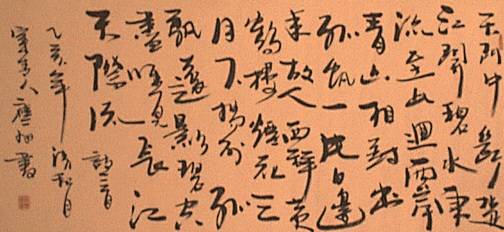 天門中斷楚
江開碧水東
流至此迴兩岸
青山相對出
孤帆一片日邊
来故人西辞黄
鶴樓煙花三
月下揚州孤
帆遠影碧空
盡唯見長江
天際流 詩二首
乙亥年月
書